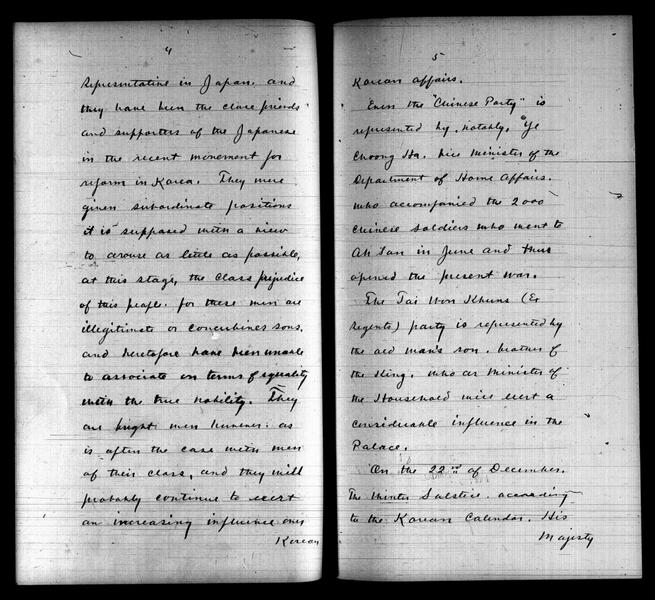 4
Representative in Japan. and
they have been the close friends
and supporters of the Japanese
in the recent movement for
reform in Korea. They were
given subordinate positions
it is supposed with a view
to arouse as little as possible,
at this stage, the class prejudice
of this people. for these men are
illegitimate or concubines sons.
and heretofore have been unable
to associate on terms of equality
with the true nobility. They
are bright men however. as
is often the case with men
of their class, and they will
probably continue to exert
an increasing influence over
Korean
5
Korean affairs.
Even the "Chinese Party" is
represented by, notably, Ye
Choong Ha. Vice Minister of the
Department of Home Affairs.
who accompanied the 2000
Chinese soldiers who went to
Ah San in June and thus
opened the present war.
The Tai Won Khuns (Ex
Regents) party is represented by
the old man's son. brother of
the King. who as Minister of
the Household will exert a
considerable influence in the
Palace.
On the 22nd of December.
The Winter Solstice. according
to the Korean Calendar. His
Majesty